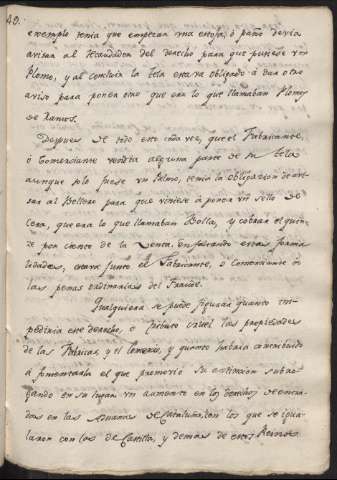 40.
exemplo tenia que empezar una estofa, ó paño devia
avisar al Arrendador del derecho para que pusiese un
Plomo, y al concluir la tela estava obligado á dar otro
aviso para poner otro que era lo que llamaban Plomos
de Ramos.
Despues de todo esto cada vez, que el Fabricante,
ó Comerciante vendia alguna parte de su tela
aunque solo fuese un Palmo, tenia la obligacion de avi-
sar al Bollero para que viniese á poner un sello de
Cera, que era lo que llamaban Bolla, y cobrar el quin-
ze por ciento de la Venta. Infringiendo estas forma-
lidades, estava sujeto el Fabricante, ó Comerciante á
las penas ordinarias del Fraude.
Qualquiera se puede figurar quanto im-
pediria este derecho, ó tributo cruel los progresos
de las Fabricas, y el Comercio, y quanto habria contribuido
á fomentarla el que promovió su extincion subro-
gando en su lugar un aumento en los derechos de entra-
das en las Aduanas de Cataluña, con los que se igua-
laron con los de Castilla, y demás de estos Reinos